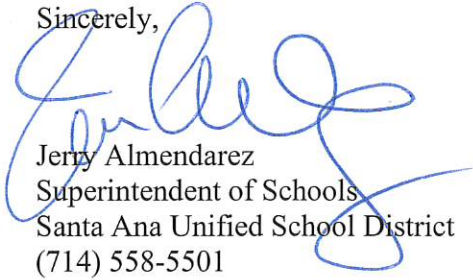 Sincerely,
Jerry Almendarez
Superintendent of Schools
Santa Ana Unified School District
(714) 558-5501